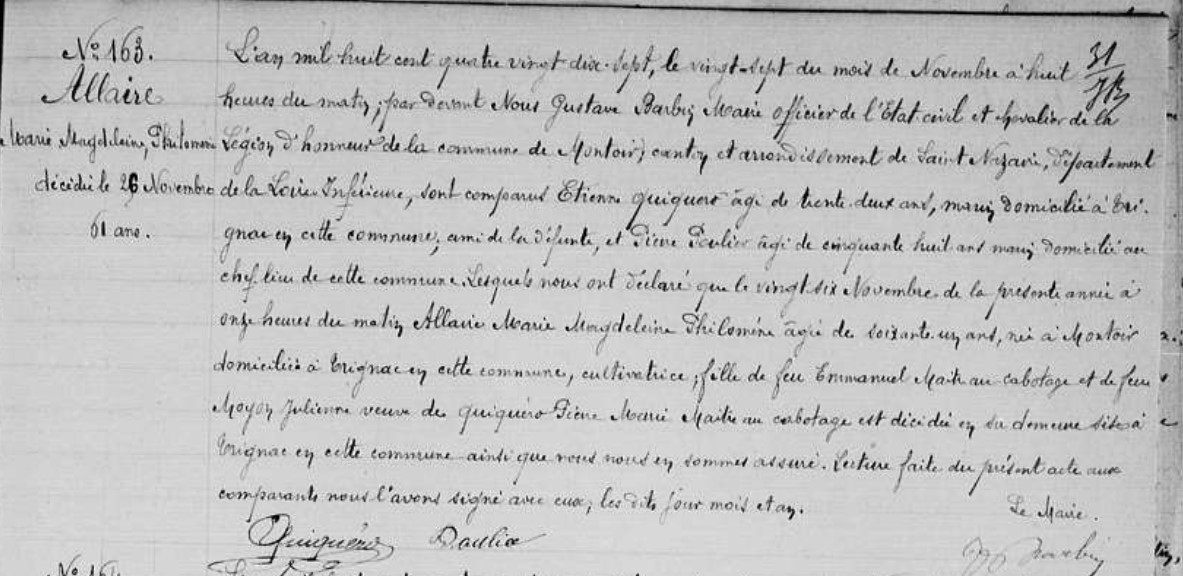 N° 163.
Allaire
Marie Magdeleine, Philomène
décédée le 26 Novembre
61 ans.
L'an mil huit cent quatre vingt dix-sept, le vingt-sept du mois de Novembre à huit
heures du matin, par devant Nous Gustave Barbin Maire officier de l'Etat civil et chevalier de la
Légion d'honneur de la commune de Montoir, canton et arrondissement de Saint Nazaire, département
de la Loire Inférieure, sont comparus Etienne Quiquéro âgé de trente deux ans, marin domicilié à Tri-
gnac en cette commune, ami de la défunte, et Pierre Paulier âgé de cinquante huit ans marin domicilié au
chef-lieu de cette commune. Lesquels nous ont déclaré que le vingt six Novembre de la présente année à
onze heures du matin Allaire Marie Magdeleine Philomène âgée de soixante un ans, née à Montoir
domiciliée à Trignac en cette commune, cultivatrice, fille de feu Emmanuel Maître au cabotage et de feue
Moyon Julienne veuve de Quiquéro Pierre Marie Maître au cabotage est décédée en sa demeure sise à
Trignac en cette commune ainsi que nous nous en sommes assuré. Lecture faite du présent acte aux
comparants nous l'avons signé avec eux, les dits jour mois et an.
Le Maire.
Quiquéro